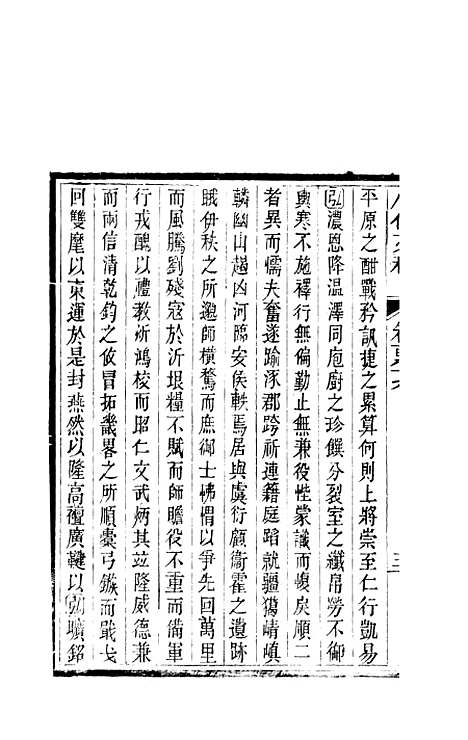 平原之酣戰矜訊捷之累算何則上將崇至仁行凱易
弘濃恩降溫澤同庖廚之珍饌分裂室之纖帛勞不御
輿寒不施襗行無偏勤止無兼役性蒙識而愎戾順二
者異而懦夫奮遂踰涿郡跨祈連籍庭蹈就疆獦崝嵮
轔幽山趨凶河臨安侯軼焉居與虞衍顧衞霍之遺跡
睋伊秩之所邈師橫騖而庶御士怫㥜以爭先回萬里
而風騰劉殘寇於沂垠糧不賦而師贍役不重而備軍
行戎醜以禮教炘鴻校而昭仁文武炳其竝隆威德兼
而兩信清乾鈞之攸冒拓畿畧之所順櫜弓鏃而戢戈
回雙麾以東運於是封燕然以隆高禪廣鞬以弘曠銘